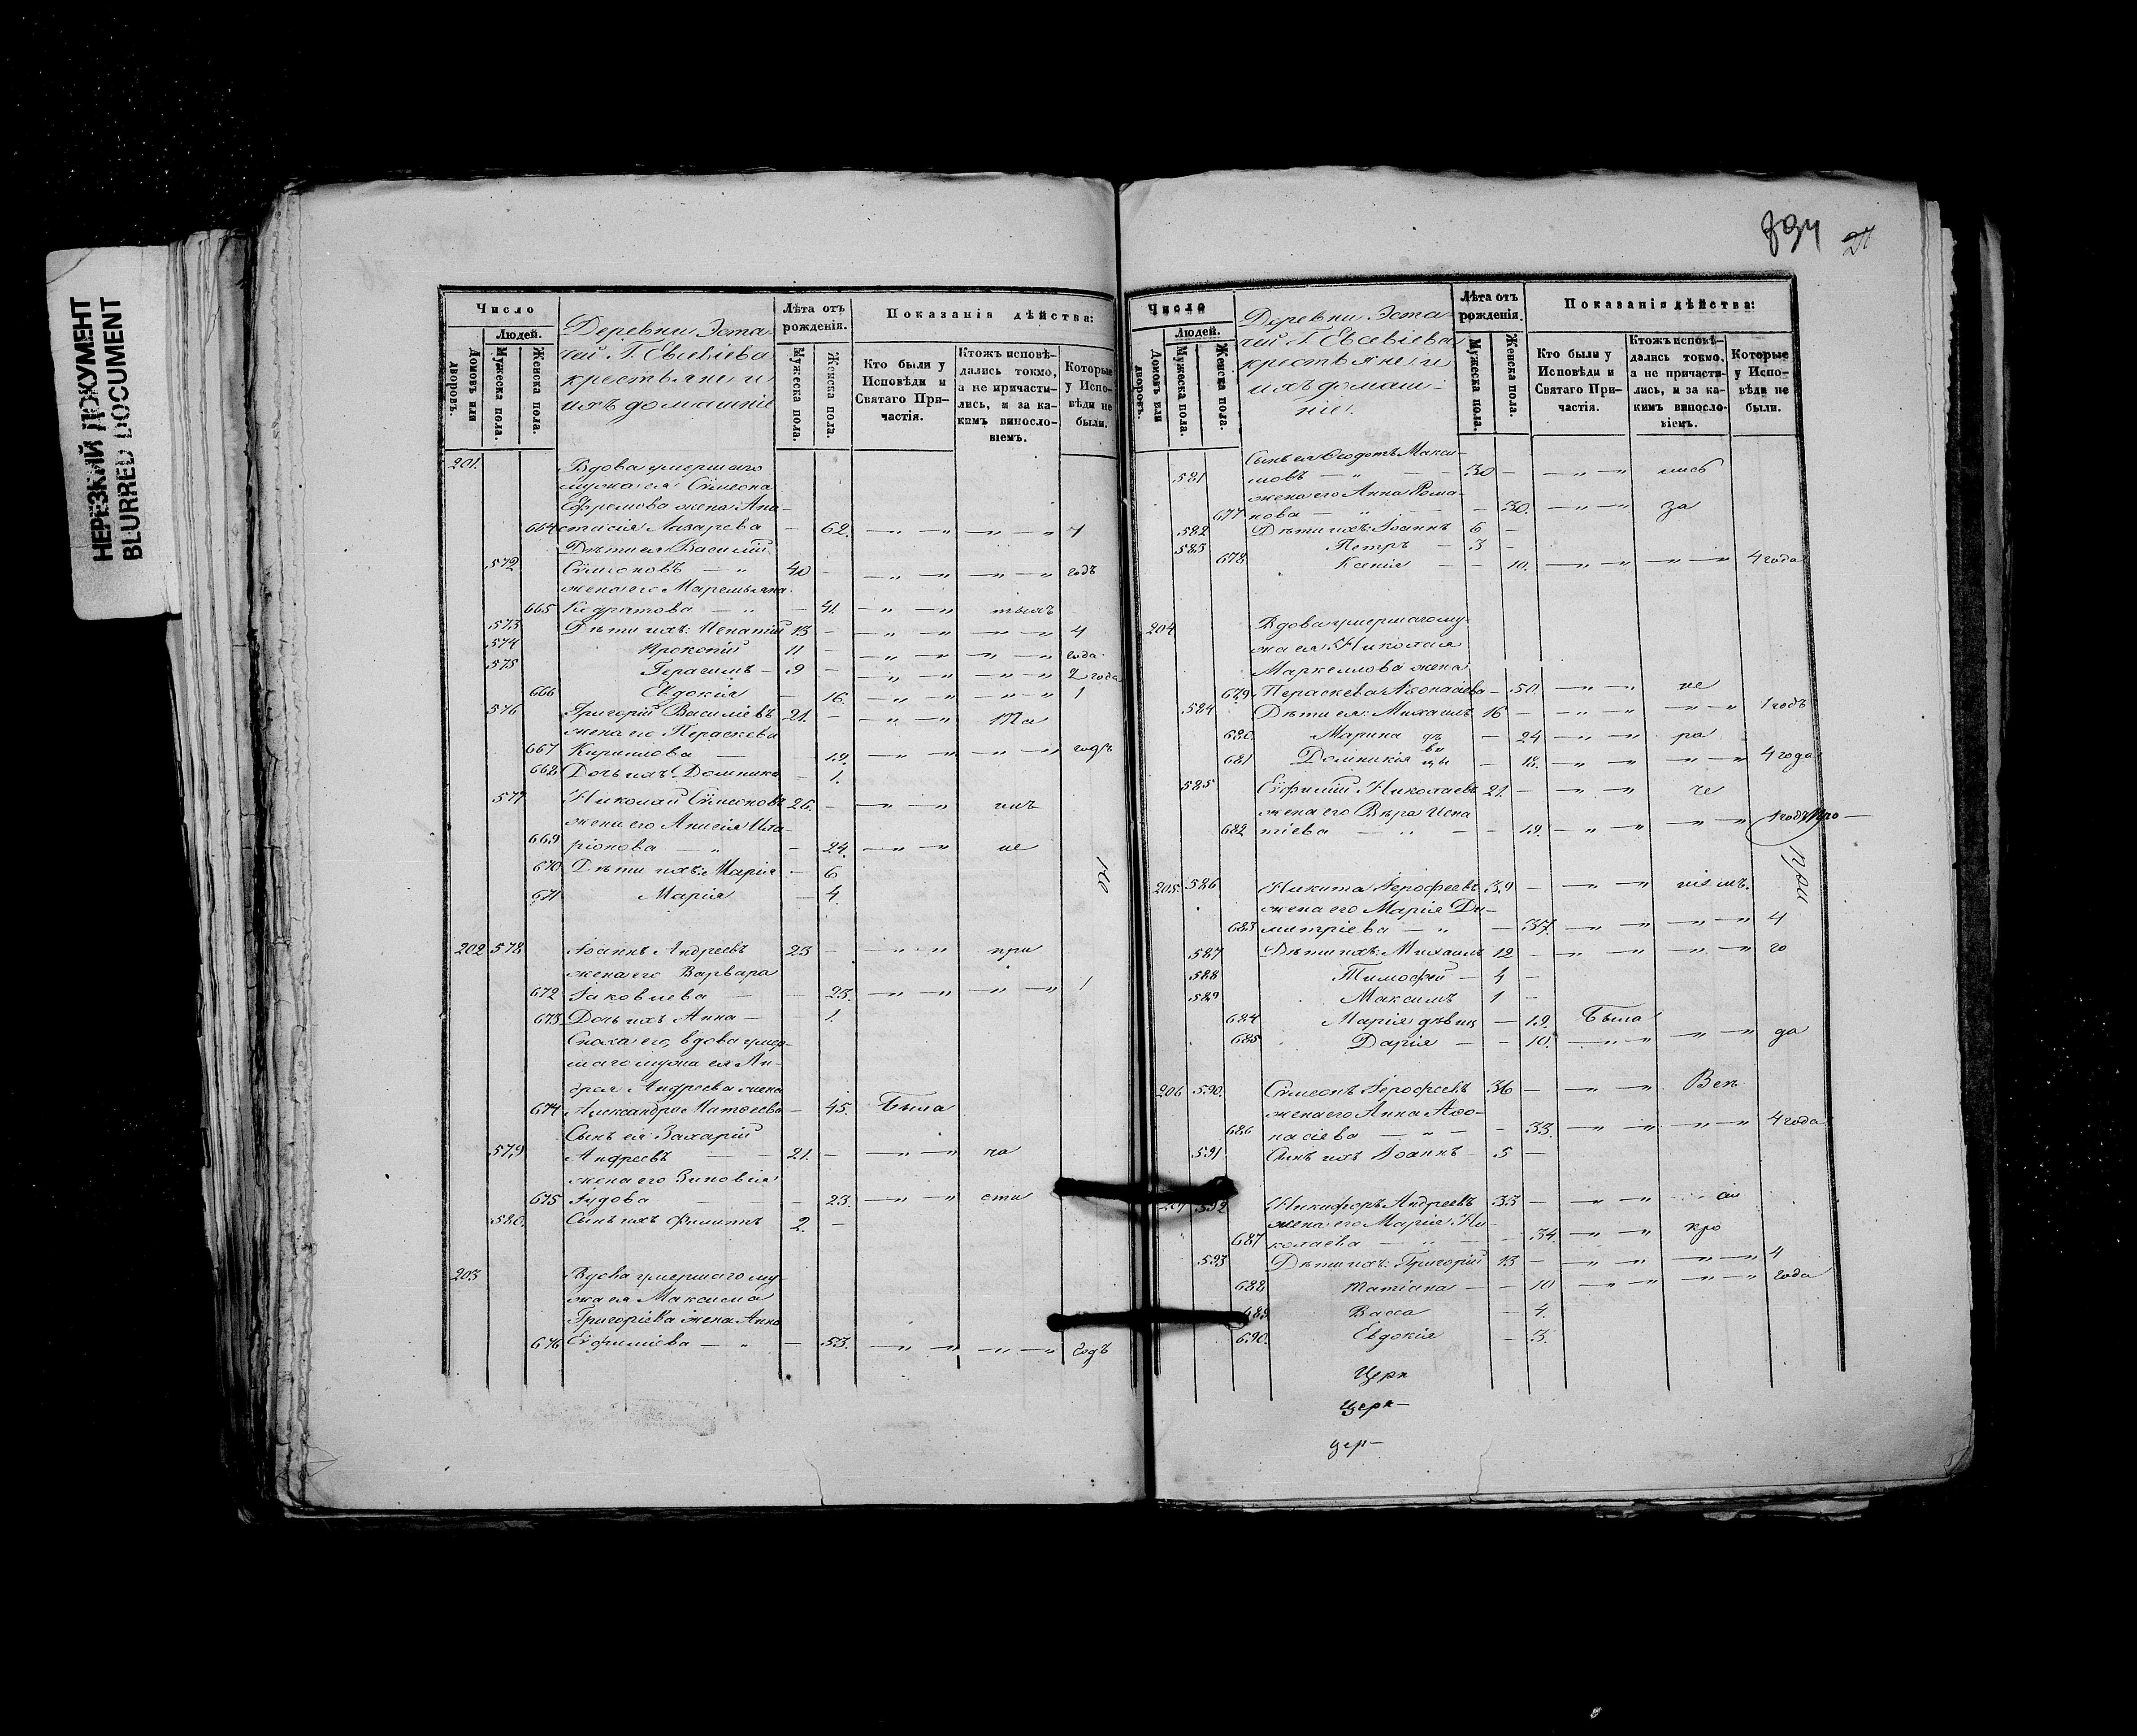 НЕРЕЗКИЙ ДОКУМЕНТ
BLURRED DOCUMENT
Число
Людей.
Домовъ или дворовъ.
Мужеска пола.
Женска пола.
Деревни Эста-
тей Г. Евсевіева
крестьяне и
ихъ домашніе
Лѣта отъ рожденія.
Мужеска пола.
Женска пола.
Показанія дѣйства:
Кто были у Исповѣди и Святаго Причастія.
Ктожъ исповѣдались токмо, а не причастились, и за какимъ винословіемъ.
Которые у Исповѣди не были.
201. Вдова умершаго
мужа ея Сѵмеона
Ефремова жена Ана-
664 стасія Лазарева — 62.
Дѣти ея: Василій
572 Сѵмеоновъ — 40 — годъ
жена его Маремьяна
665 Кодратова — 41. тыхъ
573 Дѣти ихъ: Игнатій 13 — 4
574 Прокопій 11 — года
575 Герасимъ — 9 — 2 года
666 Евдокія — 16. 1
576 Григорій Василіевъ 21. — Та
жена его Параскева
667 Кириллова — 19. годъ
668 Дочь ихъ Домника — 1.
577 Николай Сѵмеоновъ 26. — имъ
жена его Анисія Ила-
669 ріонова — 24. не
670 Дѣти ихъ: Марія — 6
671 Марія — 4.
202 578 Іоаннъ Андреевъ 23 — при
жена его Варвара
672 Іаковлева — 23. 1
673 Дочь ихъ Анна — 1.
Сноха его, вдова умер-
шаго мужа ея Ан-
дрея Андреева жена
674 Александра Матѳеева — 45. Была
Сынъ ея Захарій
579 Андреевъ — 21. — ча
жена его Зиновія
675 Іудова — 23. сти
580. Сынъ ихъ Филиппъ 2. —
203 Вдова умершаго му-
жа ея Максима
Григоріева жена Анна
676 Еѵфиміева — 53. годъ
894
Число
Людей.
Домовъ или дворовъ.
Мужеска пола.
Женска пола.
Деревни Эста-
тей Г. Евсевіева
крестьяне и
ихъ домаш-
ніе
Лѣта отъ рожденія.
Мужеска пола.
Женска пола.
Показанія дѣйства:
Кто были у Исповѣди и Святаго Причастія.
Ктожъ исповѣдались токмо, а не причастились, и за какимъ винословіемъ.
Которые у Исповѣди не были.
Сынъ ея Ѳеодотъ Макси-
581 мовъ — 30 — лись
жена его Анна Рома-
677 нова — 30. за
582 Дѣти ихъ: Іоаннъ 6 —
583 Петръ — 3 —
678 Ксенія — 10. 4 года
204 Вдова умершаго му-
жа ея Николая
Маркеллова жена
679 Параскева Аѳонасіева — 50. не
584 Дѣти ея: Михаилъ 16 — 1 годъ
680. Марина дѣ — 24 ра
681 Домникія ви цы — 18. 4 года
585 Еѵфимій Николаевъ 21. — че
жена его Вѣра Игна
682 тіева — 19. 1 годъ
205 586 Никита Іерофеевъ 39 — ніемъ.
жена его Марія Ди-
683 митріева — 37. 4
587 Дѣти ихъ: Михаилъ 12 — го
588 Тимофей — 4 —
589 Максимъ 1 —
684 Марія дѣвиц — 19. Была
685 Дарія — 10. да
206 590. Сѵмеонъ Іерофеевъ 36 — Веч
жена его Анна Аѳо-
686 насіева — 33. 4 года
591 Сынъ ихъ Іоаннъ — 5 —
592 Никифоръ Андреевъ 33 —
жена его Марія Ни-
687 колаева — 34. кро
593 Дѣти ихъ: Григорій 13 — 4
688 Татіана — 10 года
689 Васса — 4.
690. Евдокія — 3.
Церк
церк-
цер-